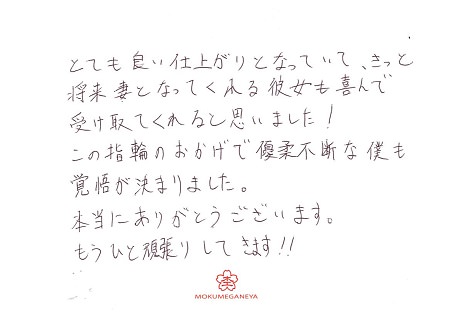 とても良い仕上がりとなっていて、きっと
将来妻となってくれる彼女も喜んで
受け取てくれると思いました!
この指輪のおかげで優柔不断な僕も
覚悟が決まりました。
本当にありがとうございます。
もうひと頑張りしてきます!!
MOKUMEGANEYA